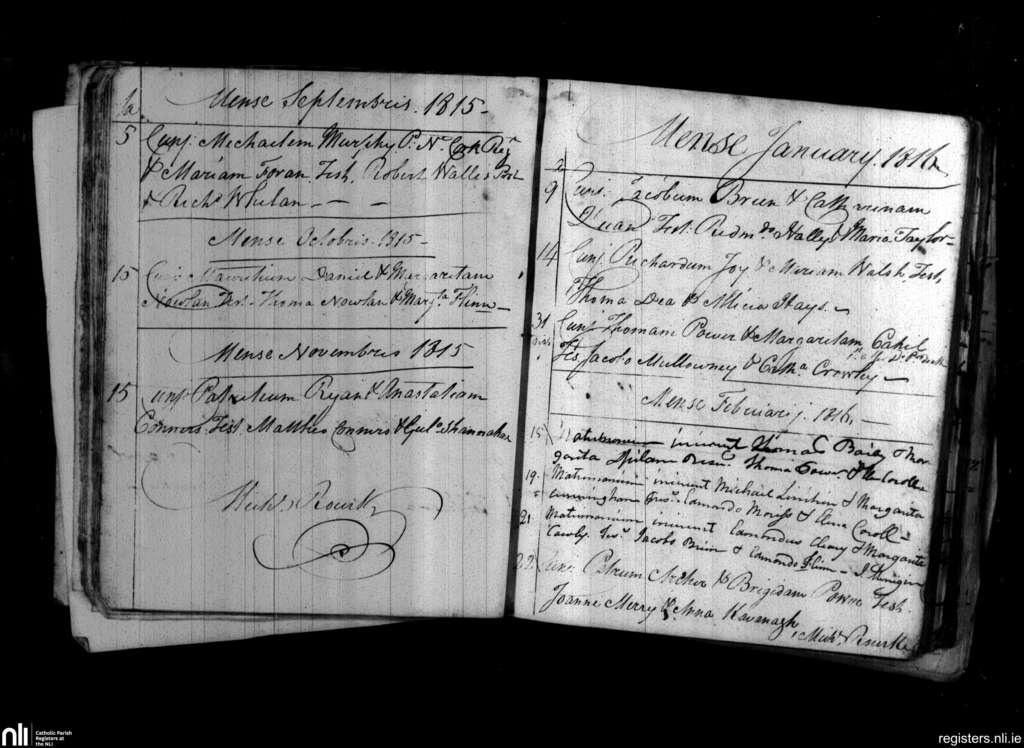 Mense Septembris 1815
5 Conj. Michaelem Murphy Pt. Nr. Cork Regt
& Mariam Foran Test. Robert Walle
& Richd. Whelan
Mense Octobris 1815
15 Conj. Mauritium Daniel & Margaritam
Nowlan Test. Thoma Nowlan & Margta Flinn
Mense Novembris 1815
15 Conj. Patritium Ryan & Anastatiam
Connors Test. Mattheo Connors & Gul. Shannahan
Michl. Rourk
Mense January 1816
9 Conj. Jacobum Breen & Catherinam
Test. Redmdo Hally & Maria Taylor
14 Conj. Richardum Joy & Mariam Walsh Test.
Thoma Dea & Alicia Hays
31 Conj. Thomam Power & Margaritam Cahel
Tes. Jacobo Mullowney & Catha Crowley
Mense Febuarij 1816
15 Matrimonium inierunt Thomas & Mar
garita Thoma Power &
19 Matrimonium inierunt Michael & Margarita
Cunningham Edmondo & Elena
21 Matrimonium inierunt Edmondus & Margarita
Jacobo & Edmondo Flinn
22 Conj. Petrum Archer & Brigidam Power Test.
Joanne Merry & Anna Kavanagh
Michl. Rourke
nli
Catholic Parish
Registers at
the NLI
registers.nli.ie